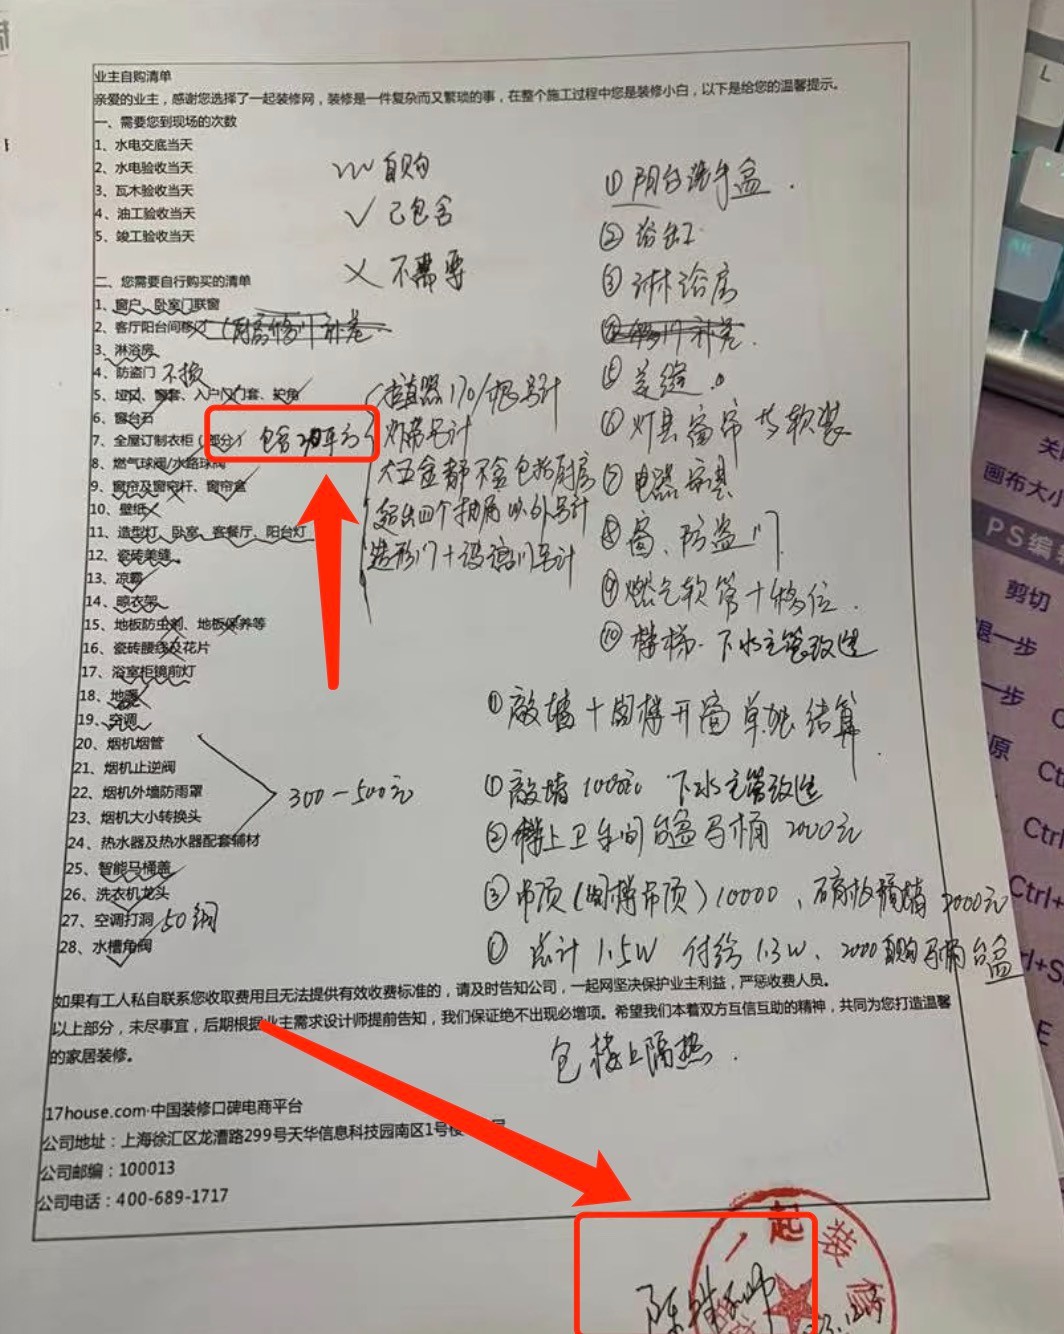 业主自购清单
亲爱的业主，感谢您选择了一起装修网，装修是一件复杂而又繁琐的事，在整个施工过程中您是装修小白，以下是给您的温馨提示。
一、需要您到现场的次数
1、水电交底当天
2、水电验收当天
3、瓦木验收当天
4、油工验收当天
5、竣工验收当天
自购
√ 已包含
× 不需要
二、您需要自行购买的清单
1、窗户、卧室门联窗
2、客厅阳台间移门
3、淋浴房
4、防盗门 不换
5、垭口、窗套、入户门门套、护角
6、窗台石
7、全屋订制衣柜（部分） 包含
8、燃气球阀/水路球阀
9、窗帘及窗帘杆、窗帘盒
10、壁纸
11、造型灯、卧室、客餐厅、阳台灯
12、瓷砖美缝
13、凉霸
14、晾衣架
15、地板防虫剂、地板保养等
16、瓷砖腰线及花片
17、浴室柜镜前灯
18、地暖
19、空调
20、烟机烟管
21、烟机止逆阀
22、烟机外墙防雨罩
23、烟机大小转换头
24、热水器及热水器配套辅材
300-500元
25、智能马桶盖
26、洗衣机龙头
27、空调打洞 50/个
28、水槽角阀
拉直器170/根另计
灯带另计
大五金都不含包括厨房
超出四个抽屉以外另计
造形门+玻璃门另计
① 阳台洗手盆.
② 浴缸
③ 淋浴房
⑤ 美缝。
⑥ 灯具窗帘 软装
⑦ 电器 家具
⑧ 窗、防盗门
⑨ 燃气软管+移位.
⑩ 楼梯. 下水主管改造
① 敲墙+阁楼开窗 单独结算.
① 敲墙 1000元 下水主管改造
② 楼上卫生间台盆马桶 2000元
③ 吊顶（阁楼吊顶）10000、石膏板隔墙 2000元
总计 1.5W 付给 1.3W、2000自购马桶台盆
如果有工人私自联系您收取费用且无法提供有效收费标准的，请及时告知公司，一起网坚决保护业主利益，严惩收费人员。
以上部分，未尽事宜，后期根据业主需求设计师提前告知，我们保证绝不出现必增项。希望我们本着双方互信互助的精神，共同为您打造温馨
的家居装修。
包楼上隔热.
17house.com·中国装修口碑电商平台
公司地址：上海徐汇区龙漕路299号天华信息科技园南区1号楼
公司邮编：100013
公司电话：400-689-1717
一起装修
L
画布大小
PS编
剪切
退一步
一步
原
Ctrl+
Ctrl+S
E